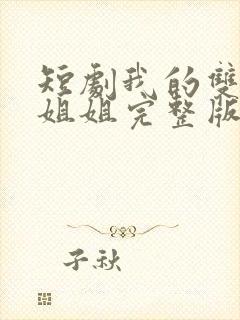 短劇我的雙
姐姐完整版
子秋